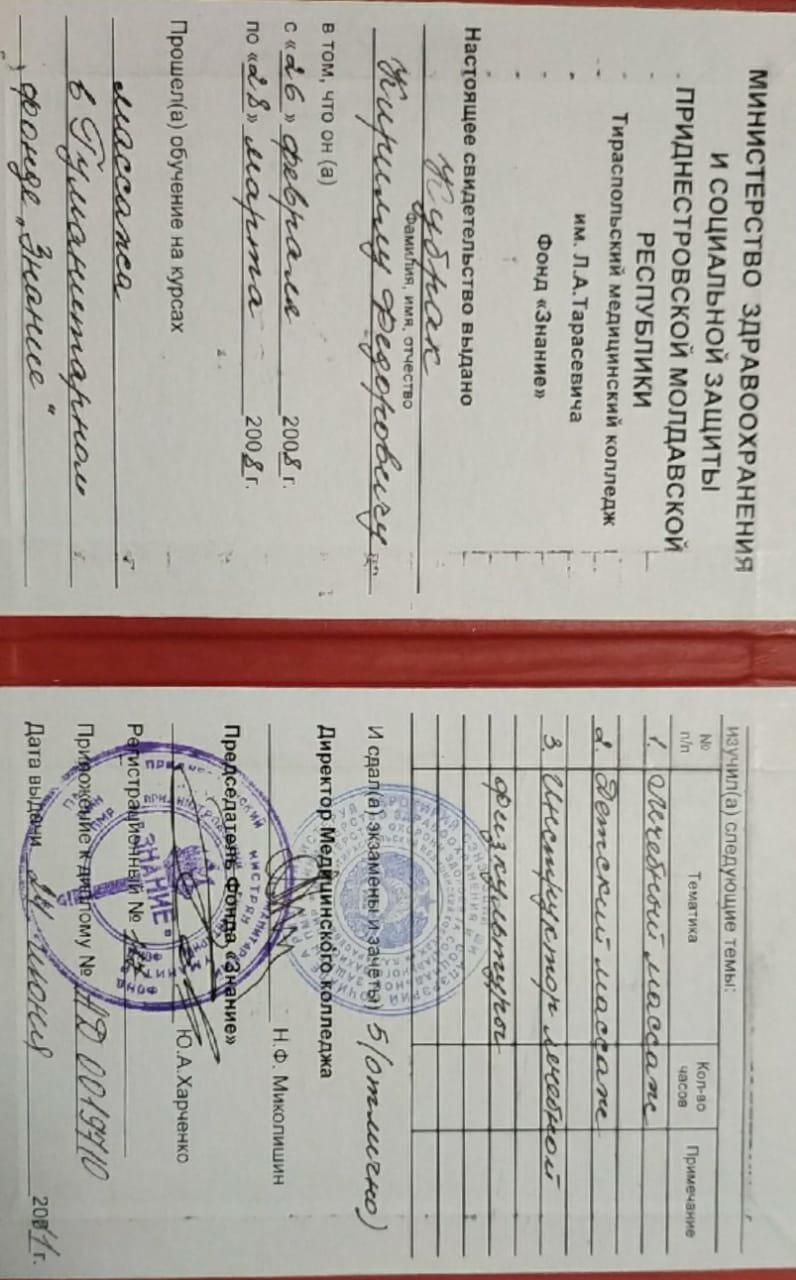 МИНИСТЕРСТВО ЗДРАВООХРАНЕНИЯ
И СОЦИАЛЬНОЙ ЗАЩИТЫ
ПРИДНЕСТРОВСКОЙ МОЛДАВСКОЙ
РЕСПУБЛИКИ
Тираспольский медицинский колледж
им. Л.А.Тарасевича
Фонд «Знание»
Настоящее свидетельство выдано
Кубрак
Фамилия, имя, отчество
Кириллу Федоровичу
в том, что он (а)
с «26» февраля 2008 г.
по «28» марта 2008 г.
Прошел(а) обучение на курсах
массажа
в Гуманитарном
фонде „Знание“
изучил(а) следующие темы:
№ п/п Тематика Кол-во часов Примечание
1. Лечебный массаж
2. Детский массаж
3. Инструктор лечебной
физкультуры
И сдал(а) экзамены и зачеты) 5/отлично)
Директор Медицинского колледжа
Н.Ф. Миколишин
Председатель Фонда «Знание»
Ю.А.Харченко
Регистрационный №
Приложение к диплому № АД 0019710
Дата выдачи 24 июня 2011 г.
ЗНАНИЕ